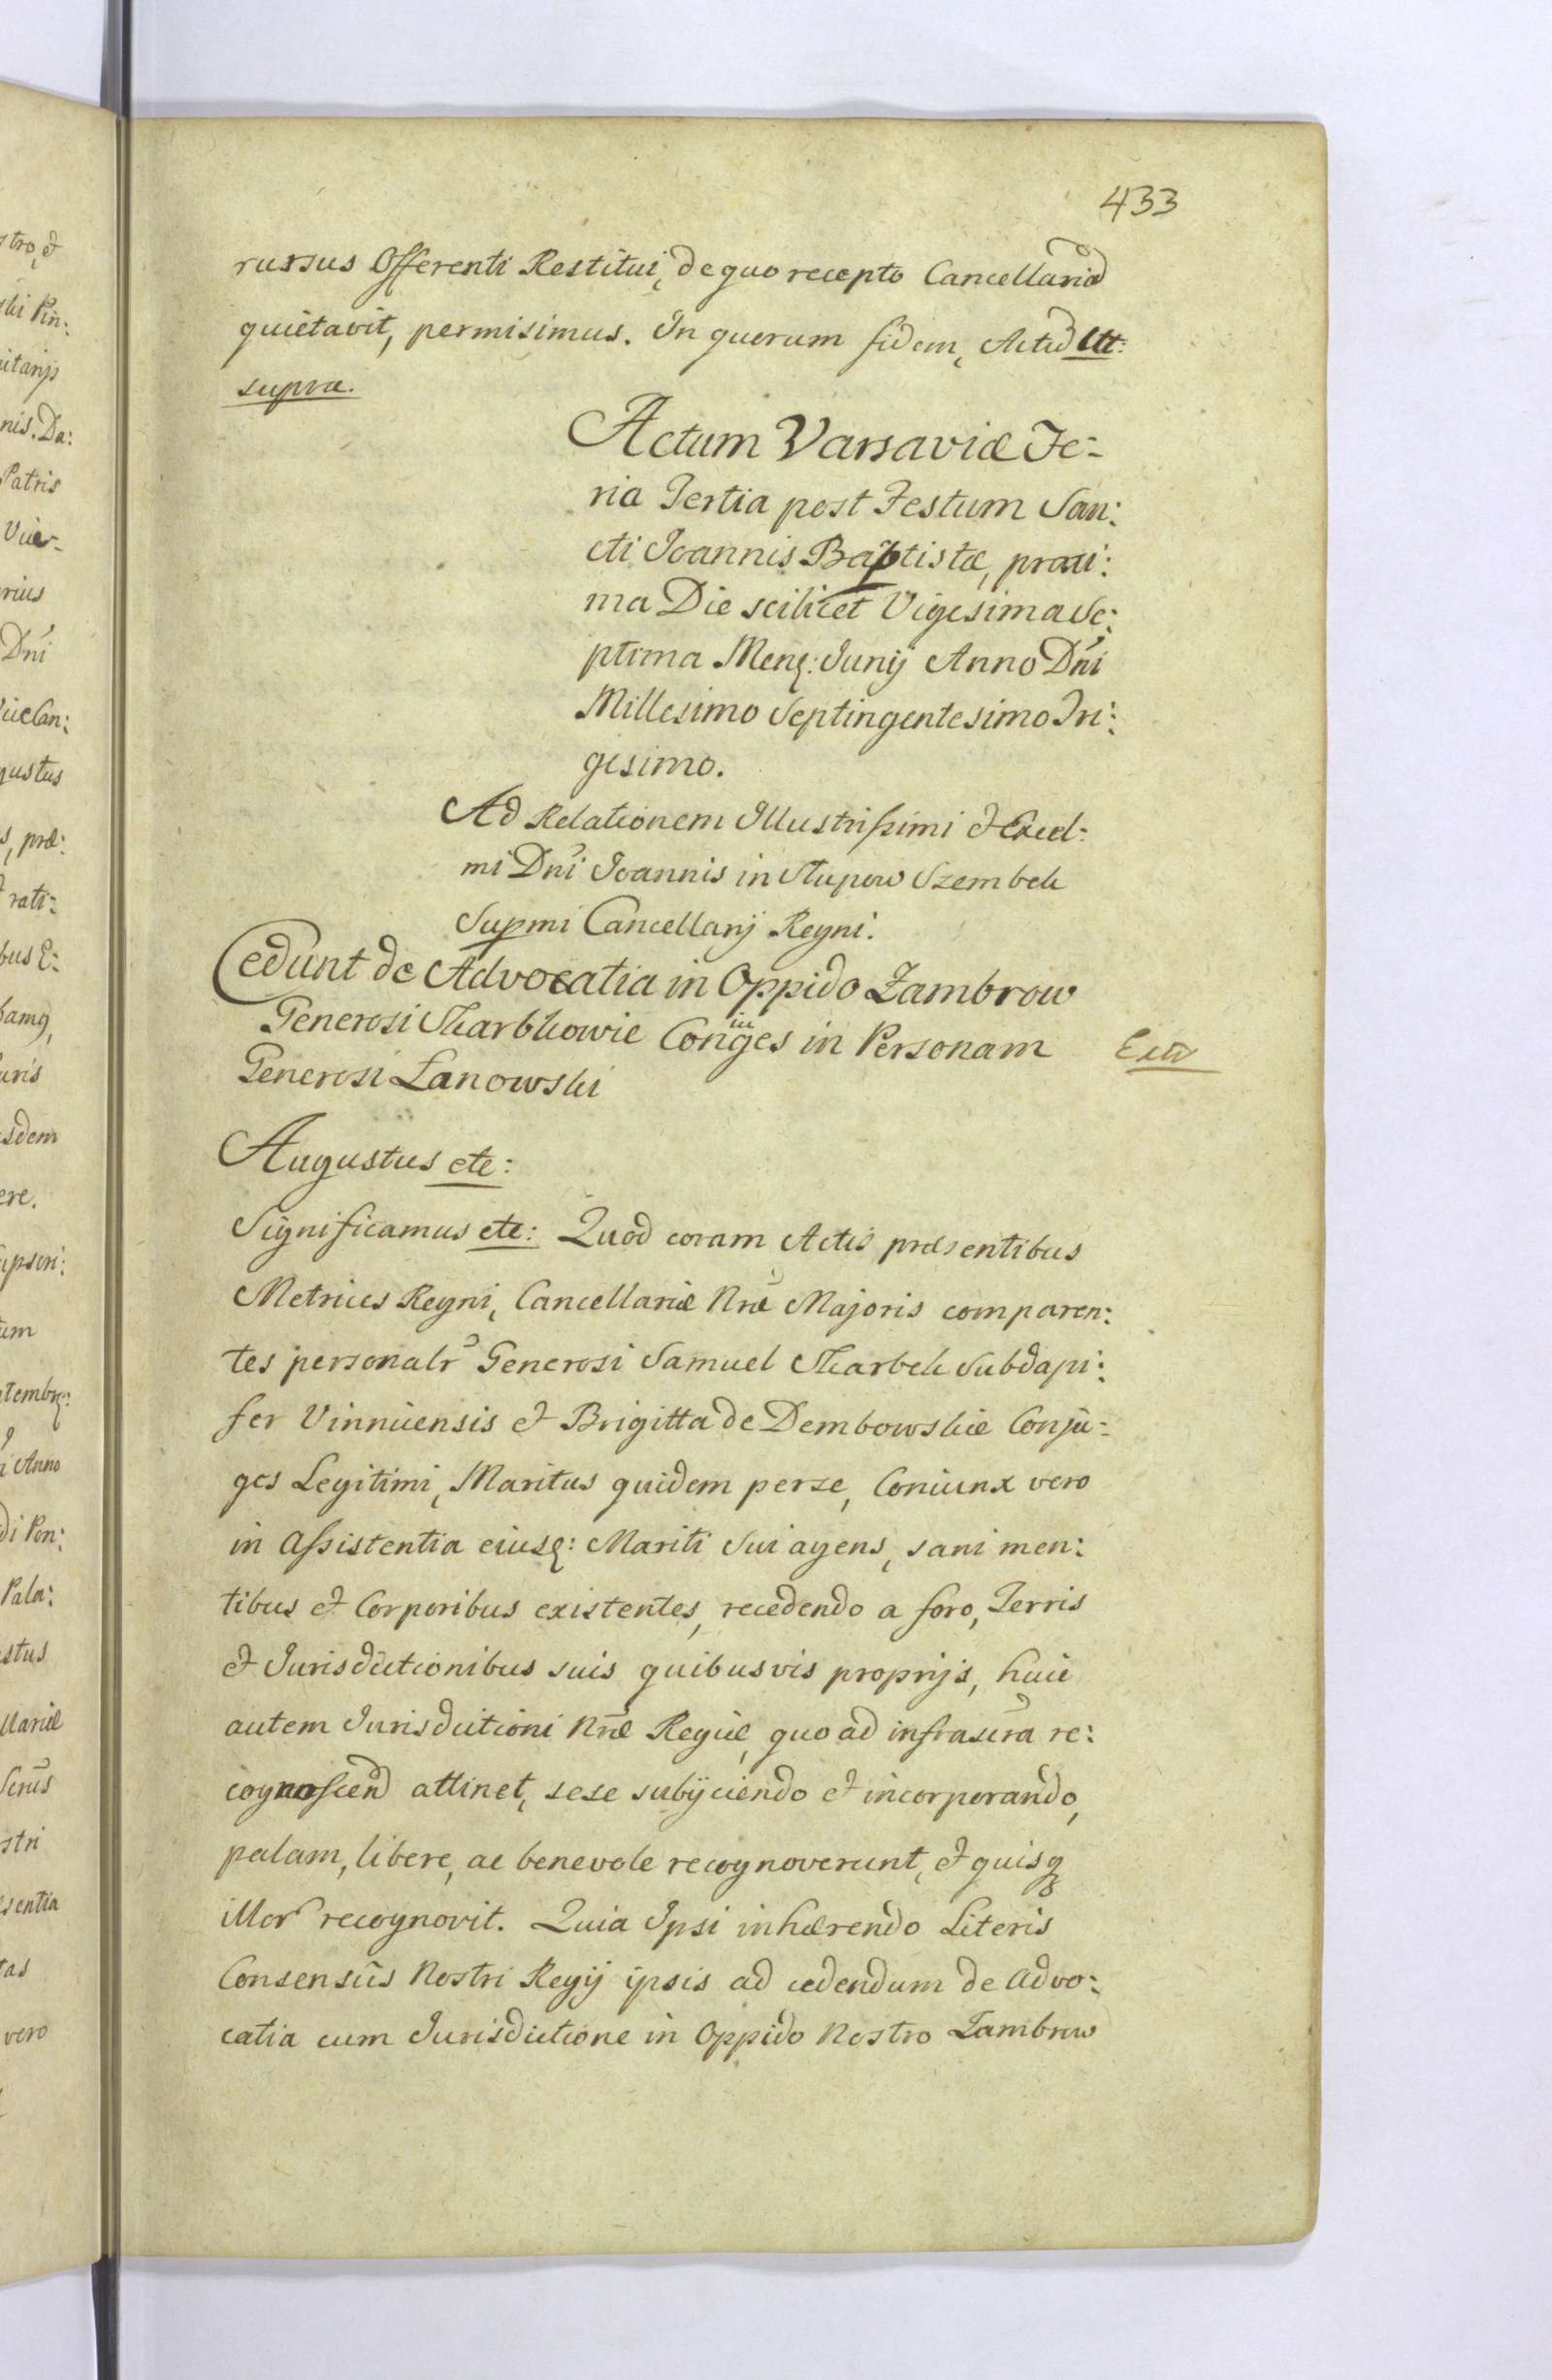 433
russus Offerenti Restitui, de quo recepto Cancellariã
quietavit, permisimus. In quorum fidem, Actũ Ut:
supra.
Actum Varsaviæ Fe-
ria Tertia post Festum San:
cti Joannis Baptistæ, proxi:
ma Die scilicet Vigesima Se:
ptima Mens: Junij Anno Dñi
Millesimo Septingentesimo Tri:
gesimo.
Ad Relationem Illustrissimi et Excel:
mi Dñi Joannis in Słupow Szembek
Supmi Cancellarij Regni.
Cedunt de Advocatia in Oppido Zambrow
Generosi Skarbkowie Coniuges in Personam
Generosi Łanowski
Augustus etc:
Significamus etc: Quod coram Actis præsentibus
Metrices Regni, Cancellariæ Nræ Majoris comparen:
tes personalr Generosi Samuel Skarbek Subdapi:
fer Vinnicensis et Brigitta de Dembowskie Conju-
ges Legitimi, Maritus quidem per se, Coniunx vero
in Assistentia eiusq: Mariti Sui agens, sani men:
tibus et Corporibus existentes, recedendo a foro, Terris
et Jurisdictionibus suis quibusvis proprijs, huic
autem Jurisdictioni Nræ Regiæ, quo ad infrascra re:
cognoscend attinet, sese subijciendo et incorporando,
palam, libere, ac benevole recognoverunt, et quisq
illor recognovit. Quia Ipsi inhærendo Literis
Consensûs Nostri Regij ipsis ad cedendum de Advo:
catia cum Jurisdictione in Oppido Nostro Zambrow